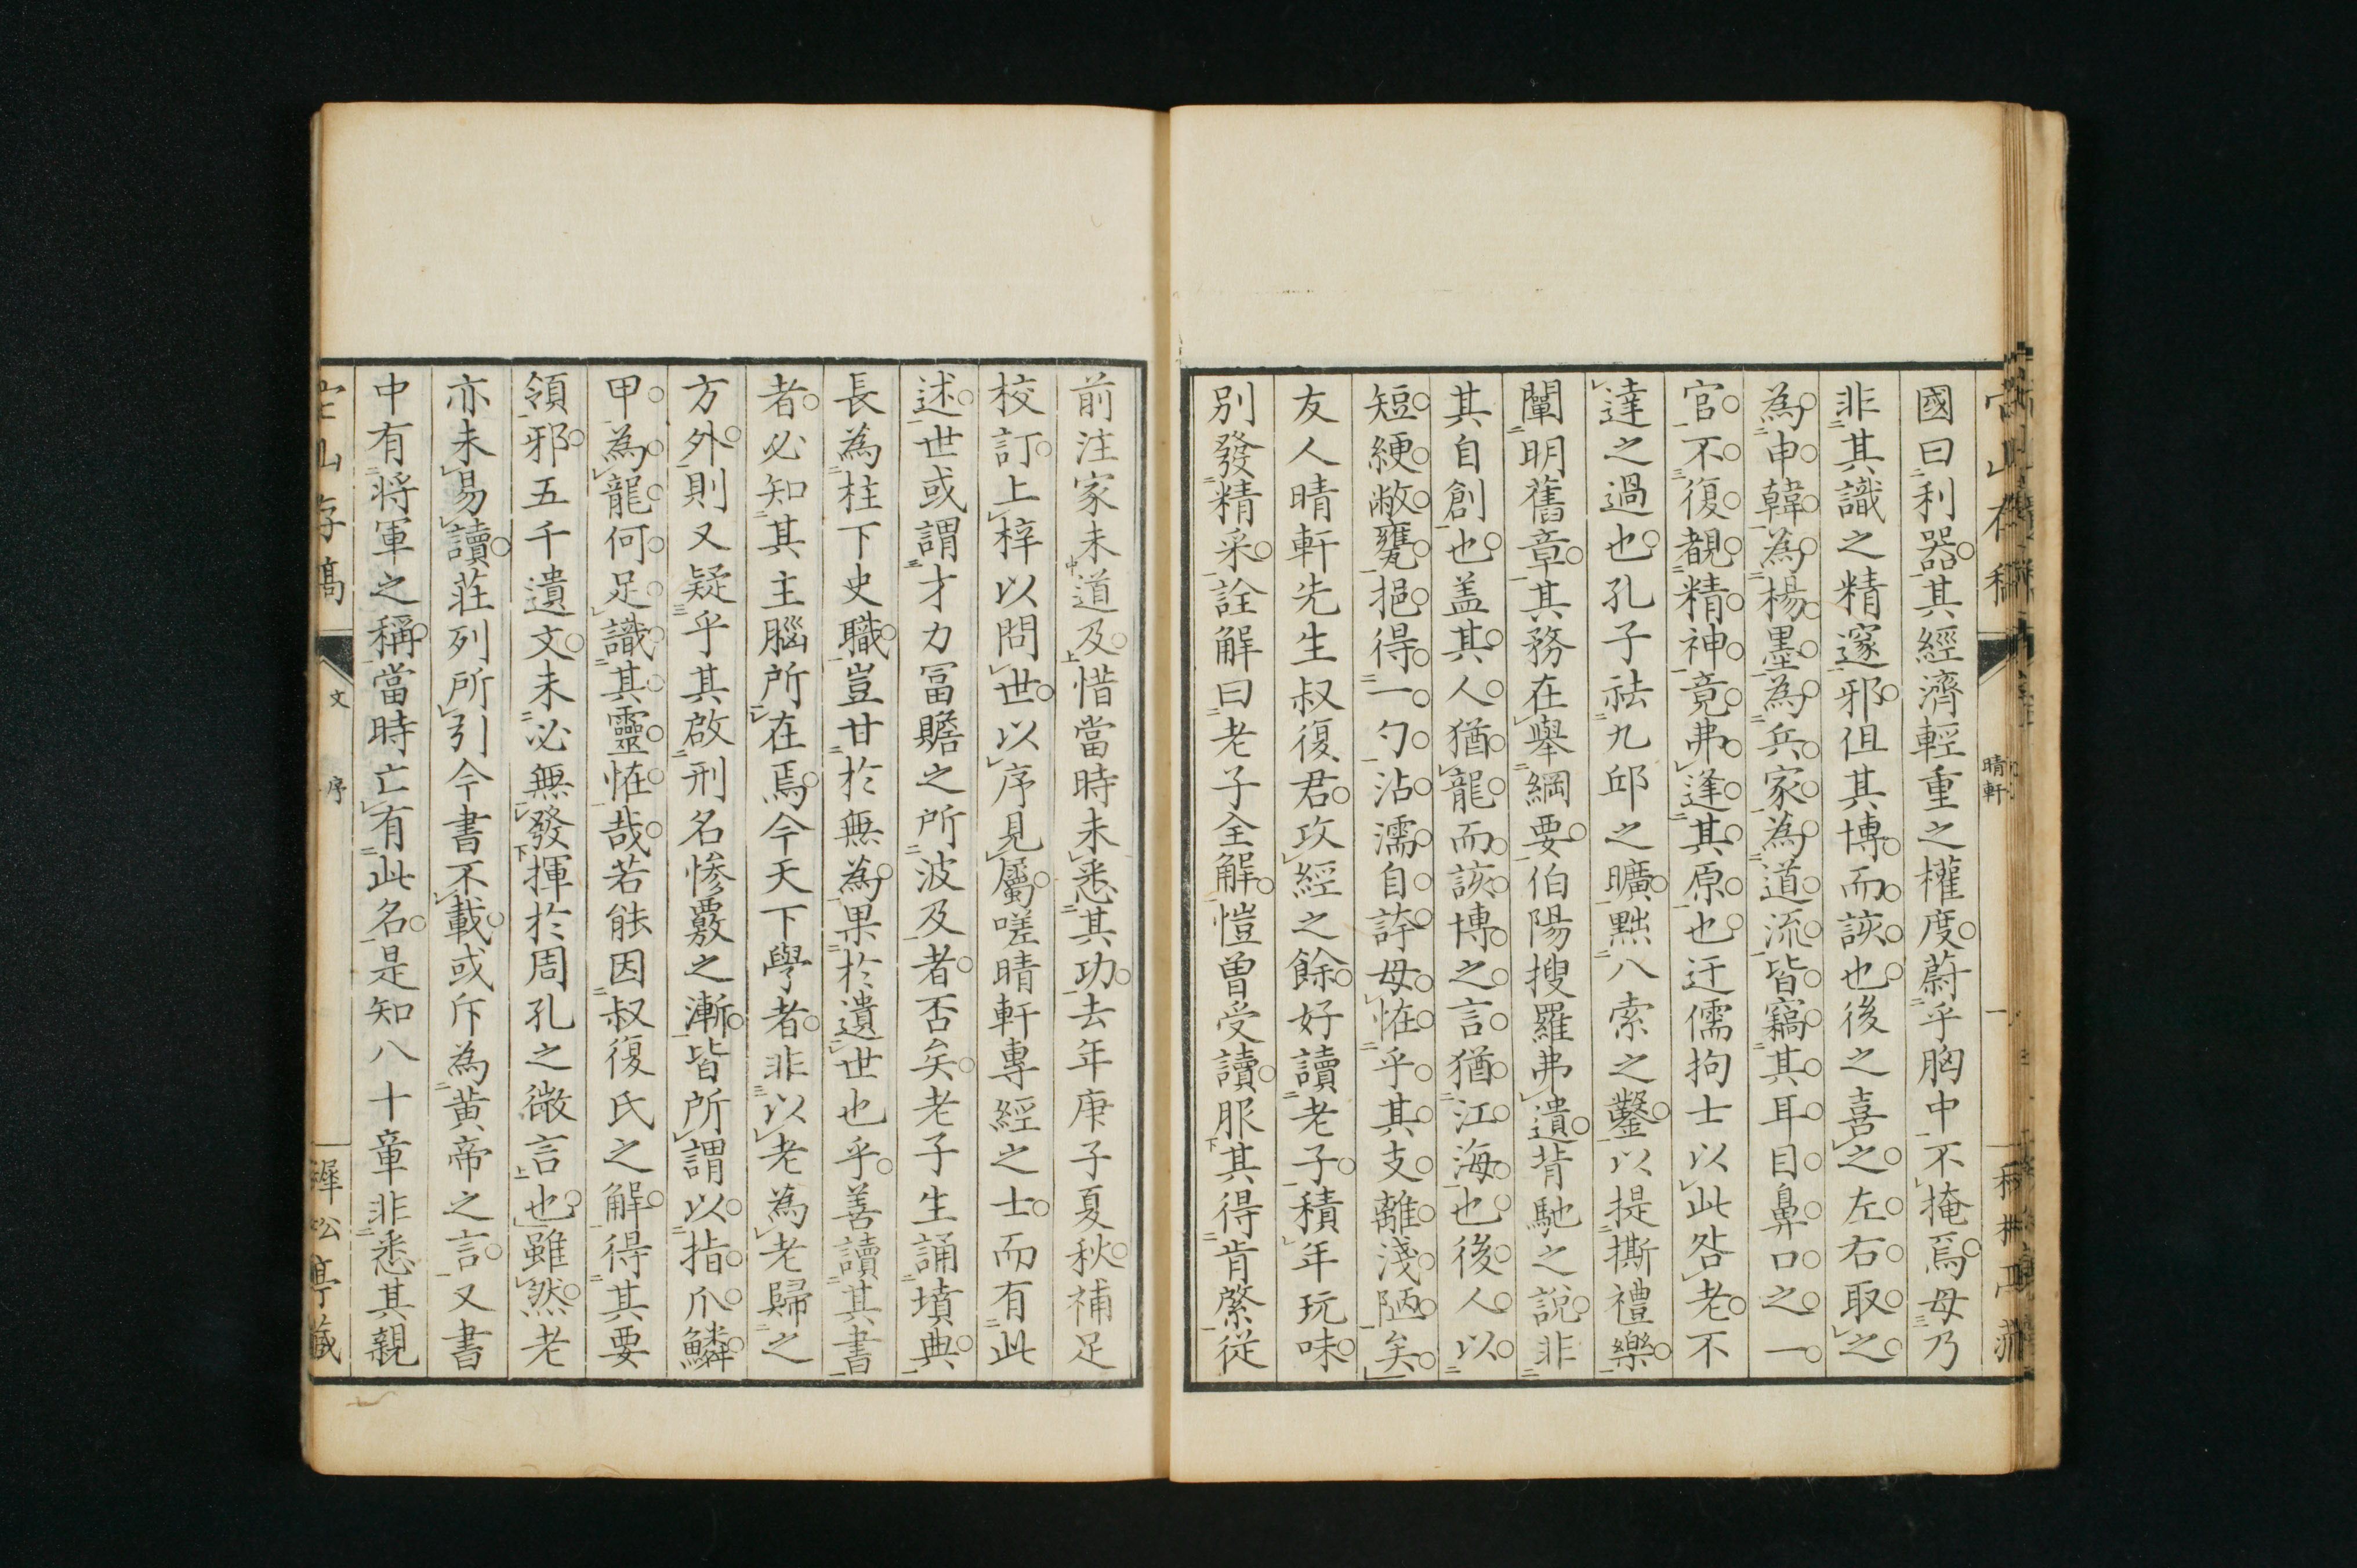 國曰利器其經濟輕重之權度蔚乎胸中不掩焉毋乃
非其識之精邃邪但其博而該也後之喜之左右取之
為申韓為楊墨為兵家為道流皆竊其耳目鼻口之一
官不復覩精神竟弗逢其原也迂儒拘士以此咎老不
達之過也孔子祛九邱之曠黜八索之鑿以提撕禮樂
闡明舊章其務在舉綱要伯陽搜羅弗遺背馳之說非
其自創也盖其人猶龍而該博之言猶江海也後人以
短綆敝甕挹得一勺沾濡自許毋恠乎其支離淺陋矣
友人晴軒先生叔復君攻經之餘好讀老子積年玩味
別發精采詮解曰老子全解愷曾受讀服其得肯綮従
晴軒
前注家未道及惜當時未悉其功去年庚子夏秋補足
校訂上梓以問世以序見屬嗟晴軒專經之士而有此
述世或謂才力冨贍之所波及者否矣老子生誦墳典
長為柱下史職豈甘於無為果於遺世也乎善讀其書
者必知其主腦所在焉今天下學者非以老為老歸之
方外則又疑乎其啟刑名惨覈之漸皆所謂以指爪鱗
甲為龍何足識其靈恠哉若能因叔復氏之解得其要
領邪五千遺文未必無發揮於周孔之微言也雖然老
亦未易讀莊列所引今書不載或斥為黃帝之言又書
中有将軍之稱當時亡有此名是知八十章非悉其親
文 序